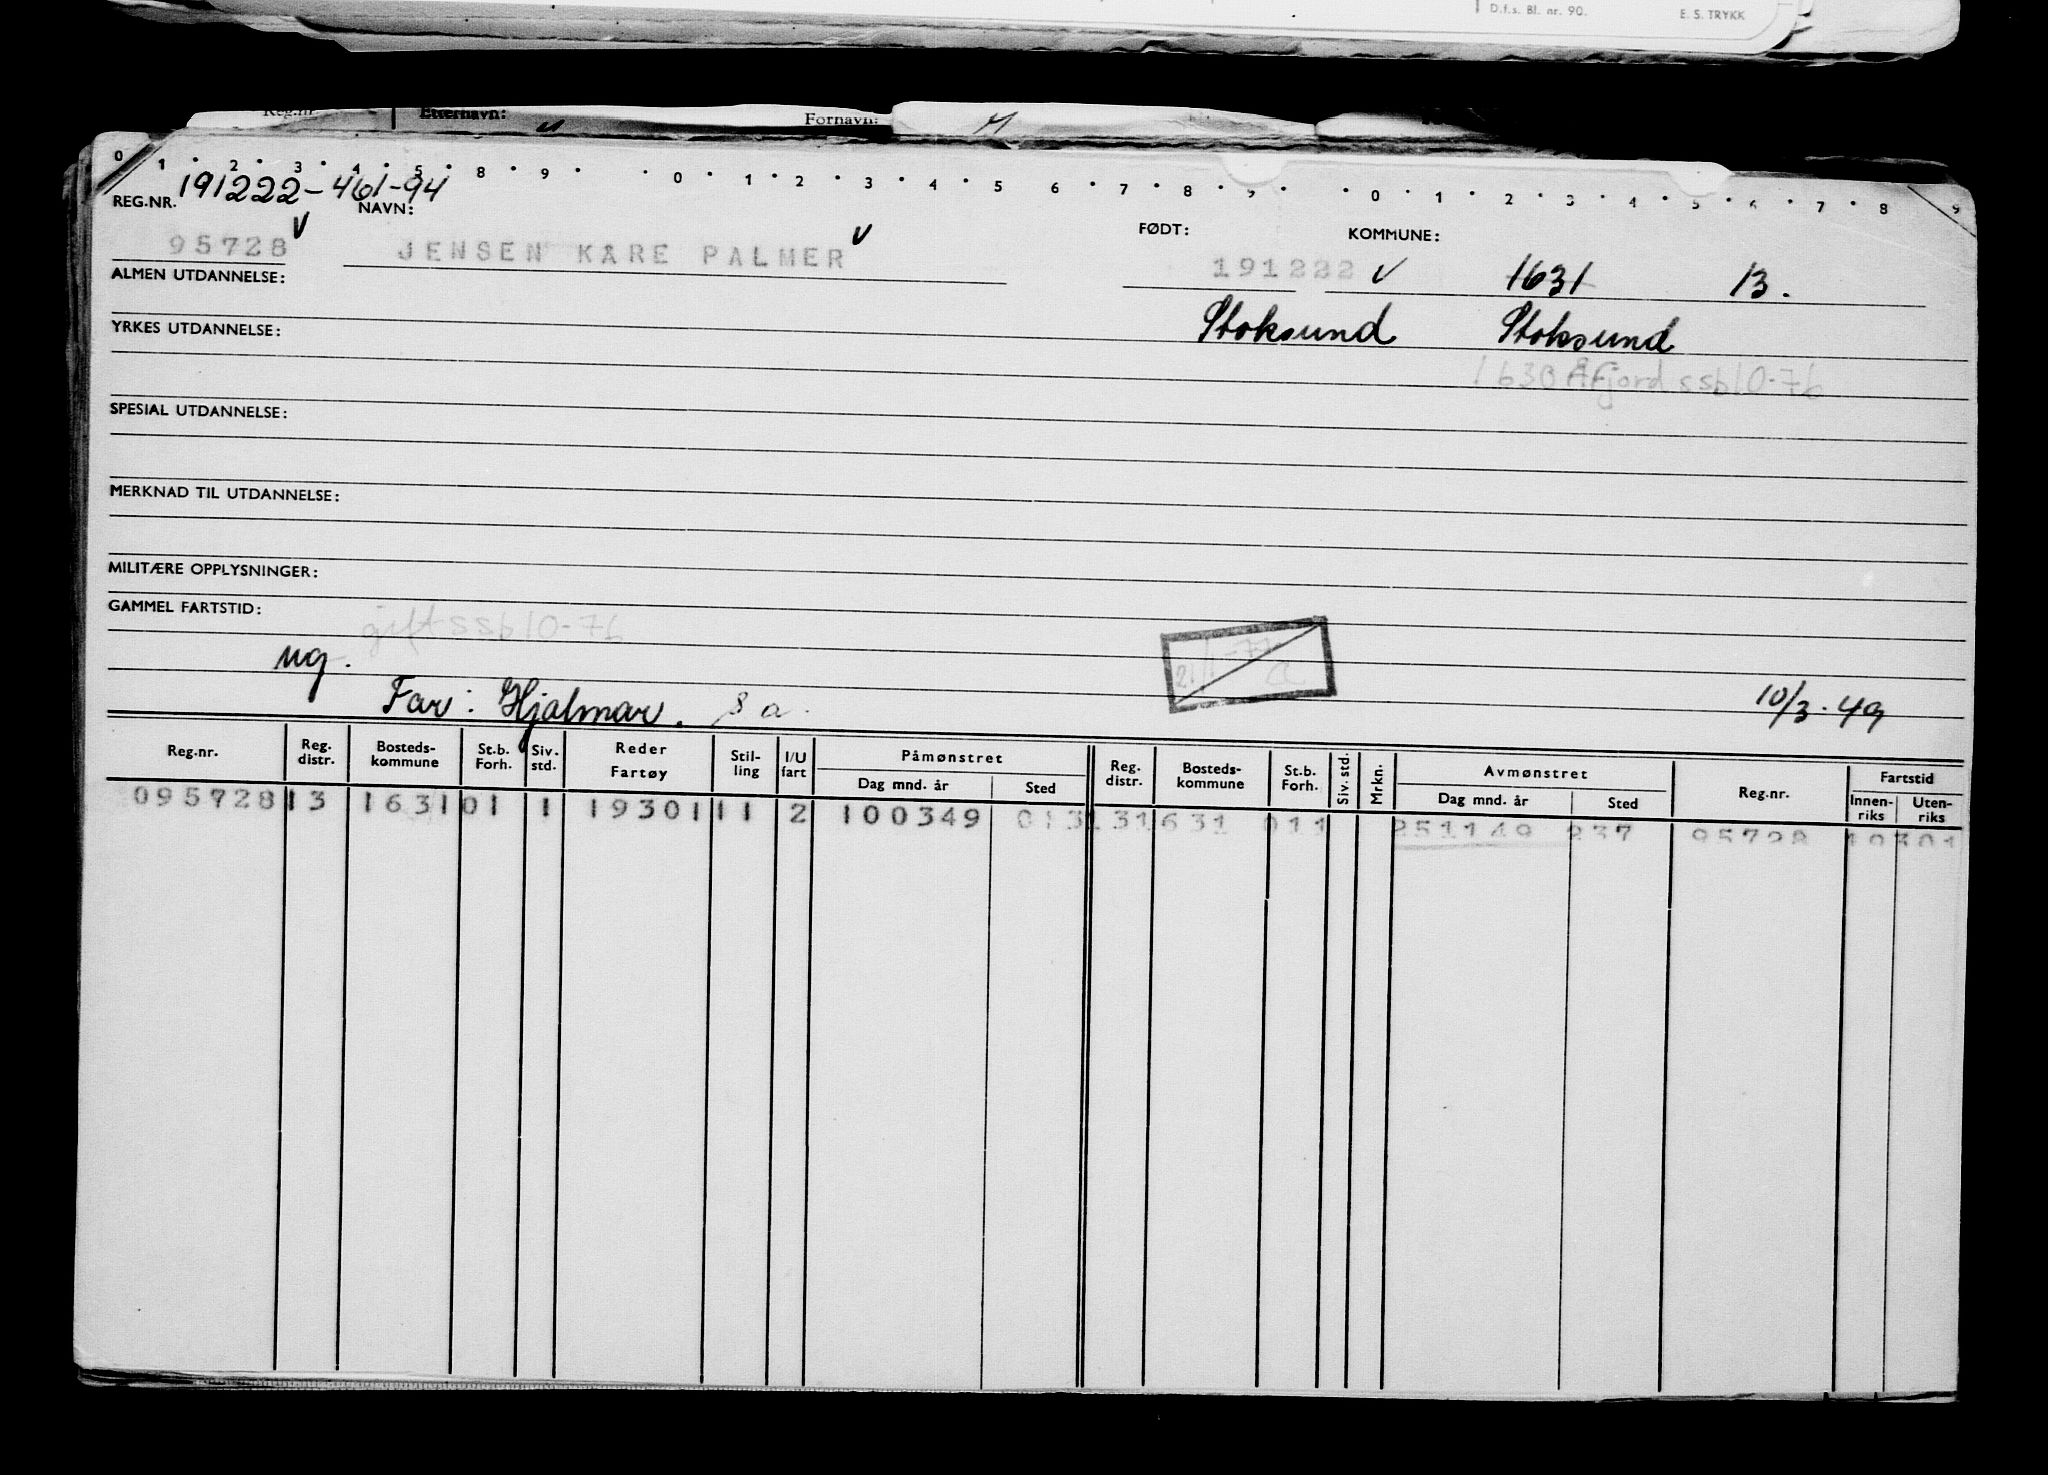 D.f.s. Bl. nr. 90. E. S. TRYKK
Reg.nr. Etternavn: Fornavn:
0 1 2 3 4 5 8 9 0 1 2 3 4 5 6 7 8 9 0 1 2 3 4 5 6 7 8 9
191222-461-94
REG.NR. NAVN: FØDT: KOMMUNE:
95728 V JENSEN KÅRE PALMER V 191222 V 1631 13.
ALMEN UTDANNELSE:
Stoksund Stoksund
YRKES UTDANNELSE:
1630 Åfjord ssb 10-76
SPESIAL UTDANNELSE:
MERKNAD TIL UTDANNELSE:
MILITÆRE OPPLYSNINGER:
GAMMEL FARTSTID:
gift ssb 10-76
ug. 21/1-77
Far: Hjalmar. 8 a. 10/3-49
Reg.nr. Reg. distr. Bosteds-kommune St.b. Forh. Siv. std. Reder Fartøy Stil-ling I/U fart Påmønstret Dag mnd. år Sted Reg. distr. Bosteds-kommune St.b. Forh. Siv. std. Mrkn. Avmønstret Dag mnd. år Sted Reg.nr. Fartstid Innen-riks Uten-riks
095728 13 1631 01 1 19301 11 2 100349 013 13 1631 011 251149 237 95728 19301